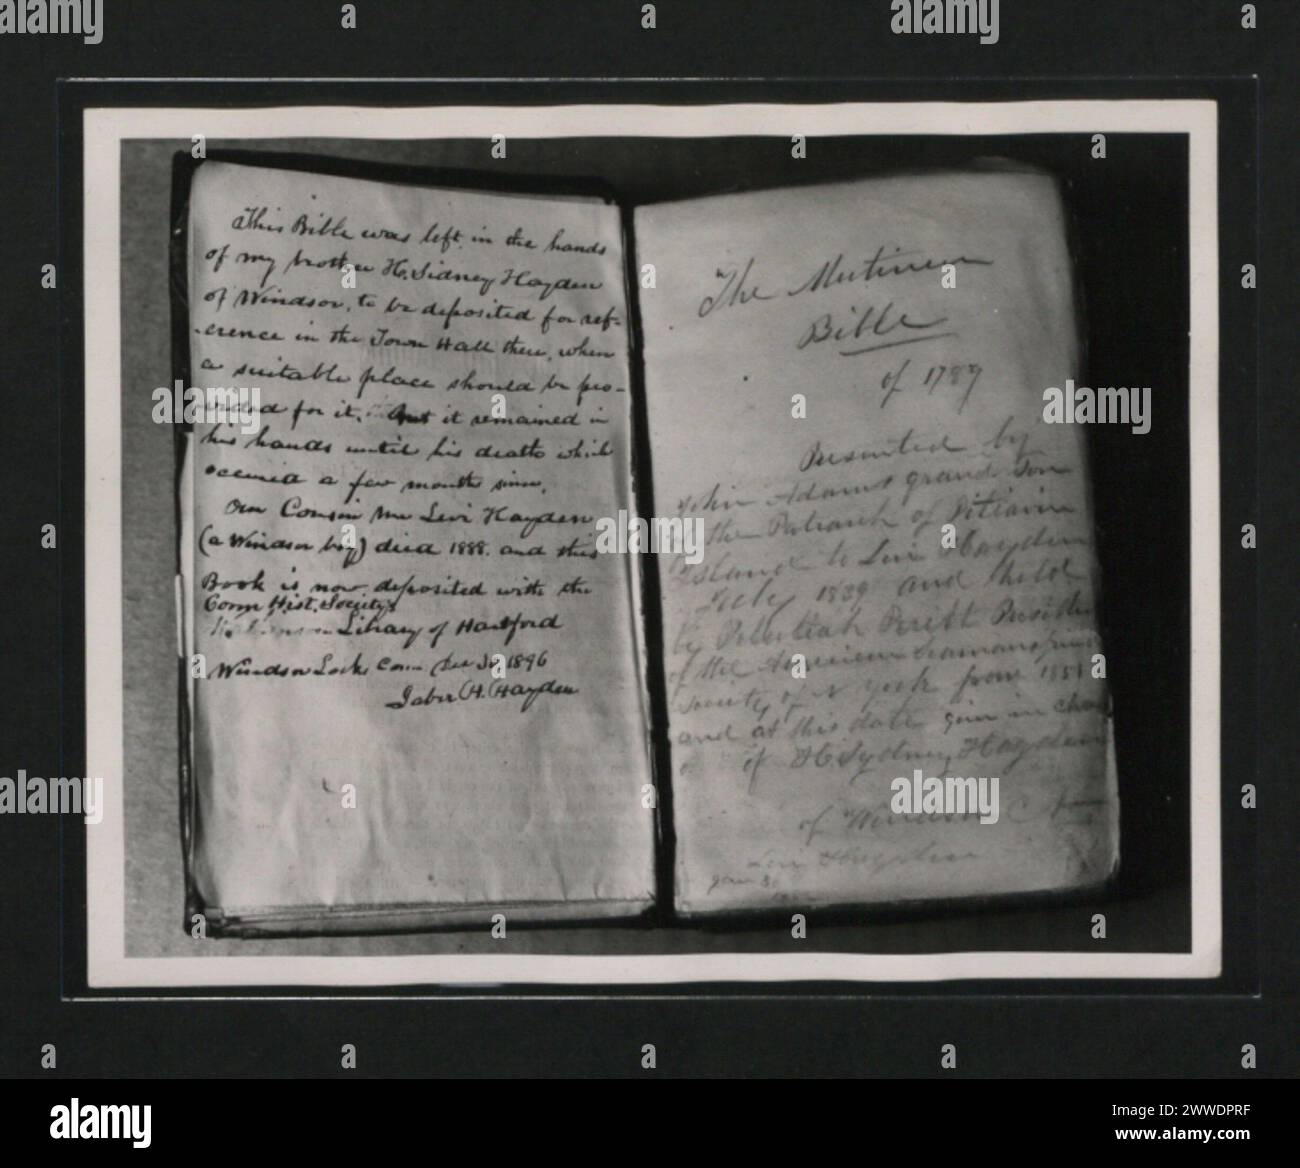 This Bible was left in the hands
of my brother H. Sidney Hayden
of Windsor, to be deposited for ref-
-erence in the Town Hall there, when
a suitable place should be pro-
-vided for it. But it remained in
his hands until his death which
occurred a few months since.
Our Cousin Mr Levi Hayden
(a Windsor boy) died 1888. and this
Book is now deposited with the
Conn Hist. Society's
Library of Hartford
Windsor Locks Conn Dec 30, 1896
Jabez H. Hayden
The Mutineer
Bible
of 1789
Presented by
John Adams grand Son
of the Patriarch of Pitcairn
Island to Levi Hayden
July 1839 and held
by Pelatiah Peritt Preside
of the American Seamans frien
Society of N York from 185
and at this date given in char
of H. Sydney Hayden
of Windsor C
Levi Hayden
June 30
alamy
Image ID: 2WWDPRF
www.alamy.com